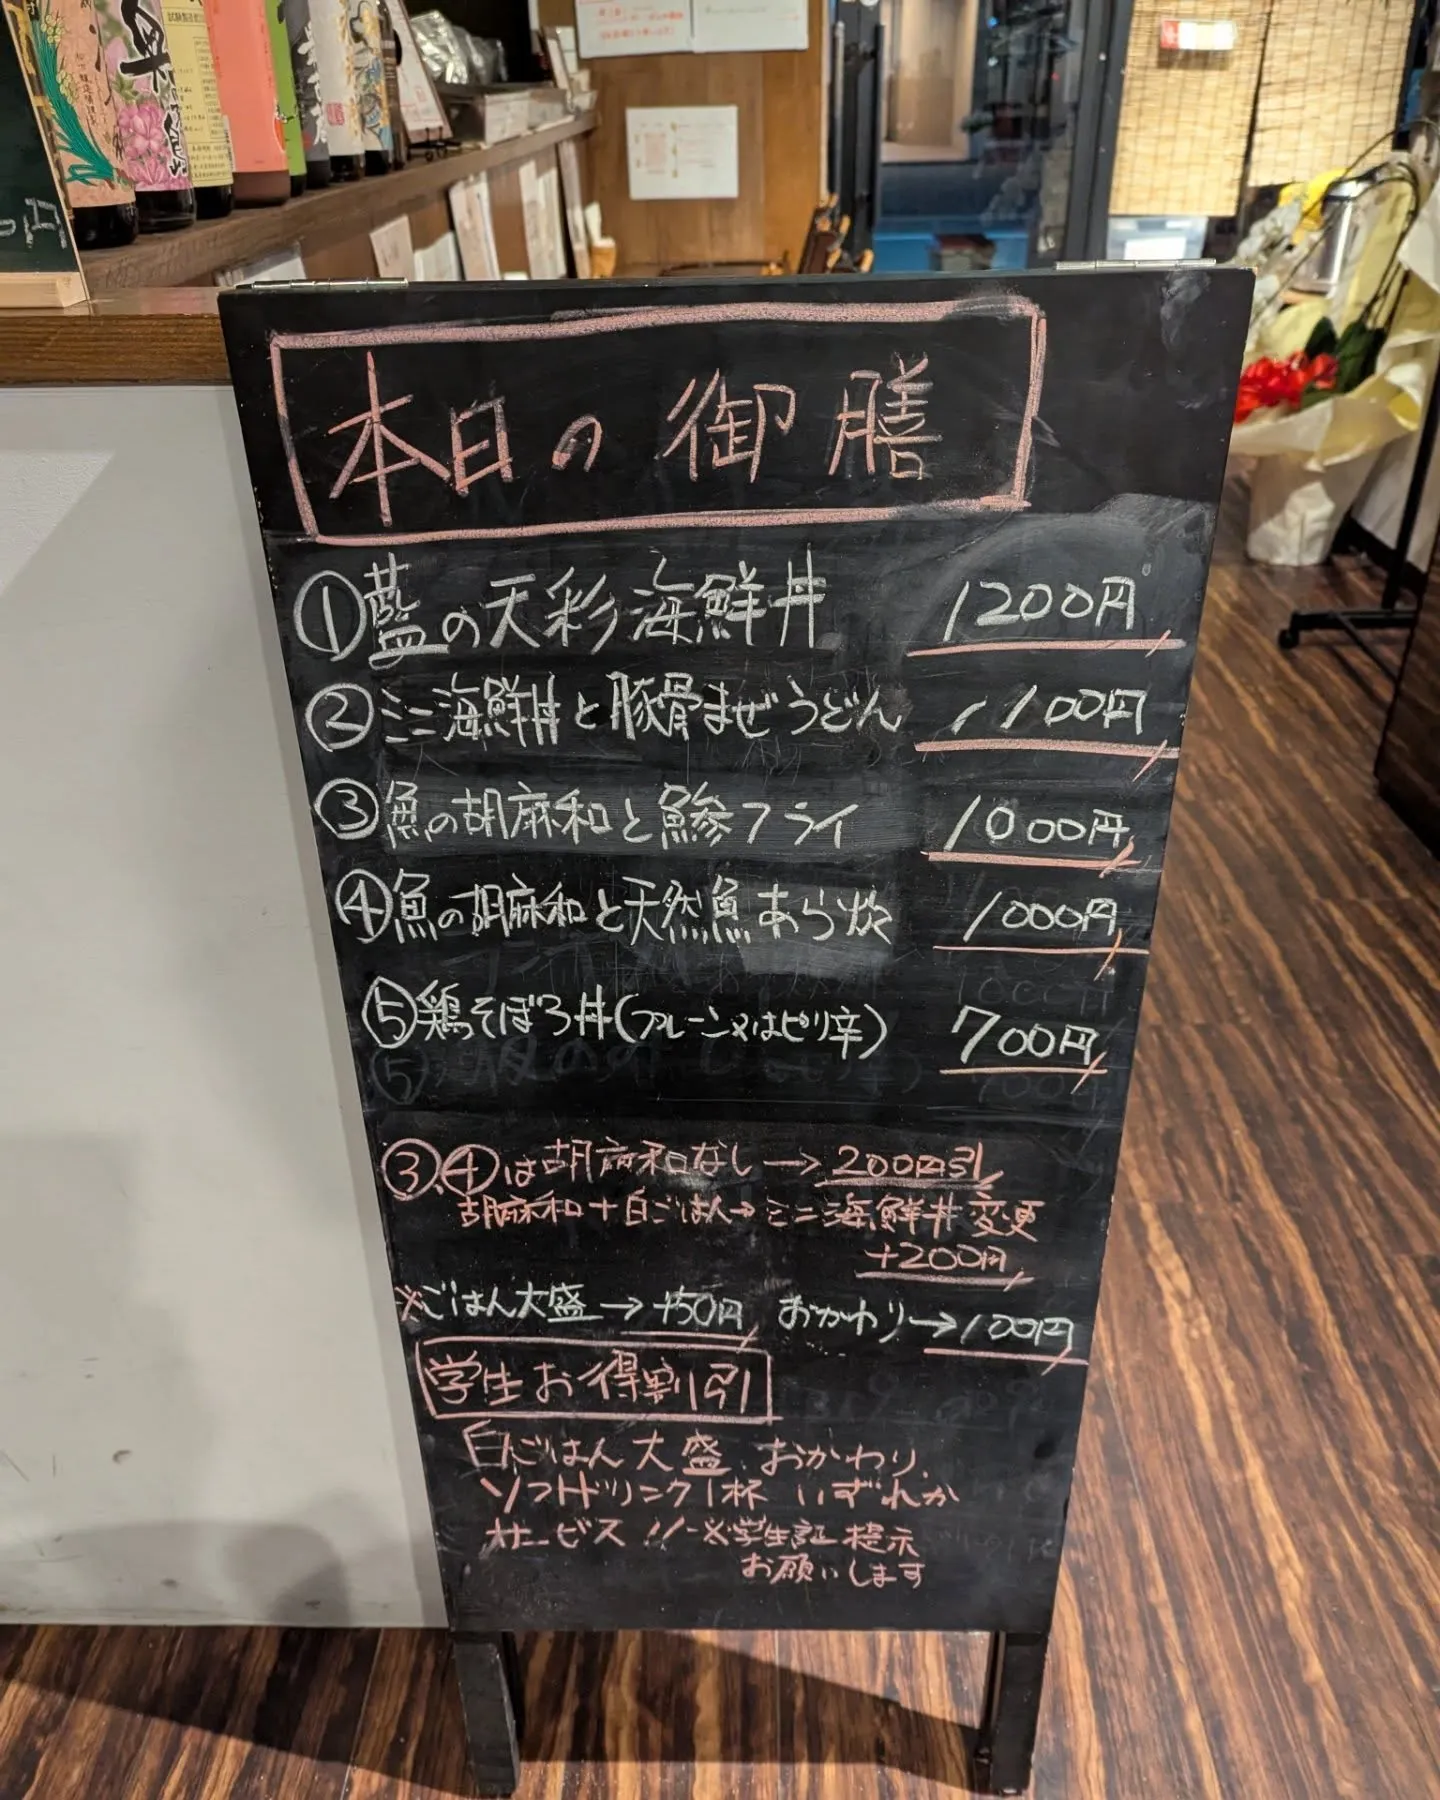 本日の御膳
①藍の天彩海鮮丼 1200円
②ミニ海鮮丼と豚骨まぜうどん 1100円
③魚の胡麻和と鯵フライ 1000円
④魚の胡麻和と天然魚あら炊 1000円
⑤鶏そぼろ丼(プレーン又はピリ辛) 700円
③,④は胡麻和なし→200円引
胡麻和+白ごはん→ミニ海鮮丼変更
+200円
※ごはん大盛→+50円 おかわり→100円
学生お得割引
白ごはん大盛、おかわり、
ソフトドリンク1杯 いずれか
サービス!!※学生証提示
お願いします